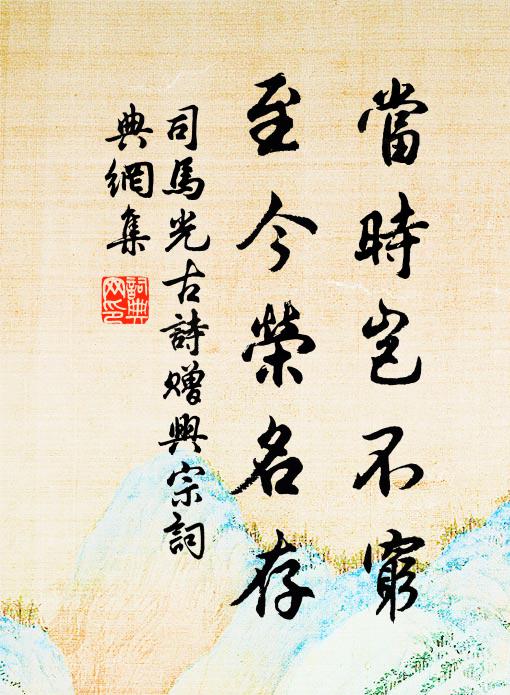 當時豈不窮
至今榮名存
司馬光古詩贈興宗詞
典網集
詞典
网印